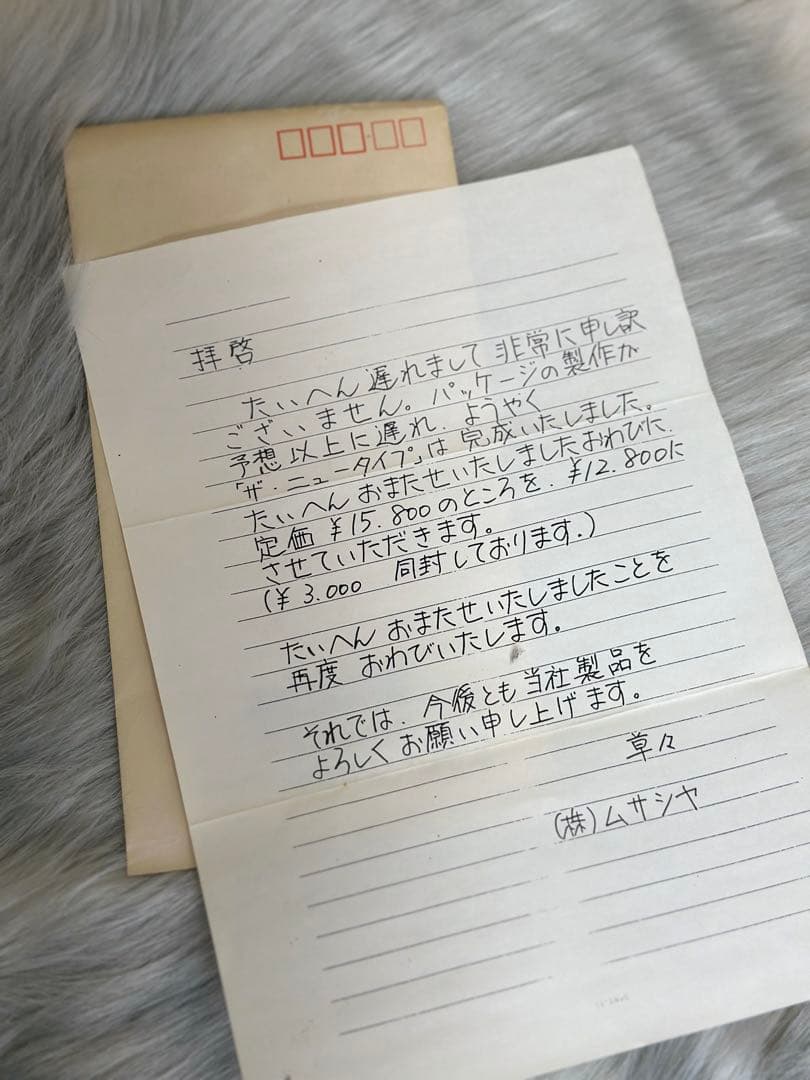 拝啓
たいへん遅れまして非常に申し訳
ございません。パッケージの製作が
予想以上に遅れ、ようやく
「ザ・ニュータイプ」は完成いたしました。
たいへんおまたせいたしましたおわびに
定価¥15.800のところを、¥12.800に
させていただきます。
(¥3.000 同封しております。)
たいへんおまたせいたしましたことを
再度おわびいたします。
それでは、今後とも当社製品を
よろしくお願い申し上げます。
草々
(株)ムサシヤ